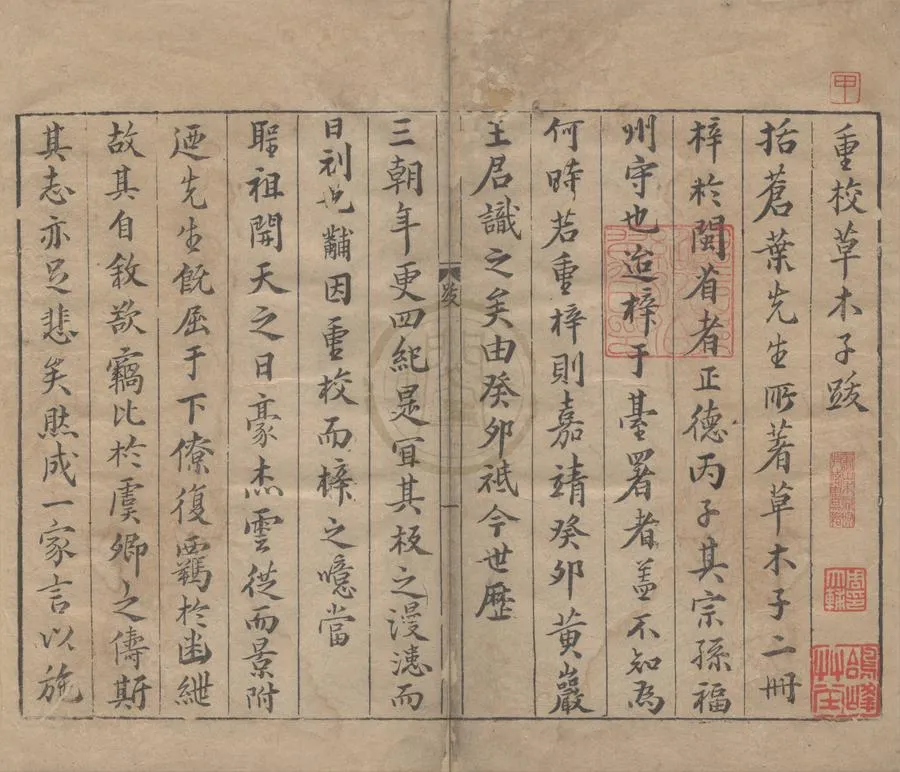 重校草木子跋
括蒼葉先生所著草木子二冊
梓於閩省者正德丙子其宗孫福
州守也迨梓于臺署者盖不知為
何時若重梓則嘉靖癸卯黄巖
王君識之矣由癸卯祗今世歷
三朝年更四紀是宜其板之漫漶而
日刓也黼因重校而梓之噫當
聖祖開天之日豪杰雲從而景附
迺先生既屈于下僚復羈於幽紲
故其自敘欲竊比於虞卿之儔斯
其志亦足悲矣然成一家言以施
跋
一
甲